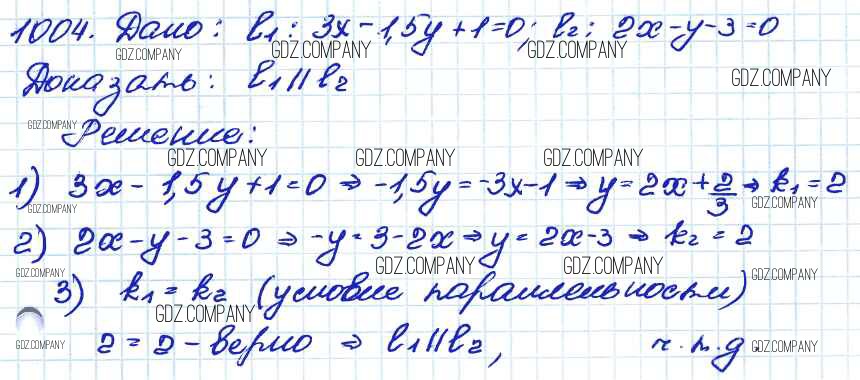 1004. Дано: l₁: 3x - 1,5y + 1 = 0; l₂: 2x - y - 3 = 0
GDZ.COMPANY GDZ.COMPANY GDZ.COMPANY
Доказать: l₁ || l₂
GDZ.COMPANY
GDZ.COMPANY
Решение:
GDZ.COMPANY GDZ.COMPANY GDZ.COMPANY
1) 3x - 1,5y + 1 = 0 ⇒ -1,5y = -3x - 1 ⇒ y = 2x + 2/3 ⇒ k₁ = 2
GDZ.COMPANY GDZ.COMPANY
2) 2x - y - 3 = 0 ⇒ -y = 3 - 2x ⇒ y = 2x - 3 ⇒ k₂ = 2
GDZ.COMPANY GDZ.COMPANY GDZ.COMPANY GDZ.COMPANY
3) k₁ = k₂ (условие параллельности)
GDZ.COMPANY
2 = 2 - верно ⇒ l₁ || l₂, ч.т.д.
GDZ.COMPANY GDZ.COMPANY